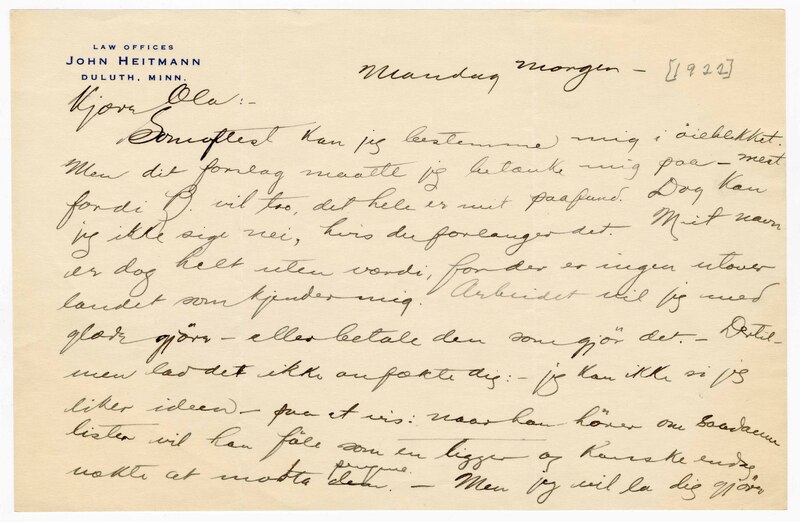 LAW OFFICES
JOHN HEITMANN
DULUTH, MINN.
Mandag morgen – [1922]
Kjære Ola:-
Somoftest kan jeg bestemme mig i öieblikket.
Men dit forslag maatte jeg betænke mig paa – mest
fordi B. vil tro, det hele er mit paafund. Dog kan
jeg ikke sige nei, hvis du forlanger det. Mit navn
er dog helt uten værdi, for der er ingen utover
landet som kjender mig. Arbeidet vil jeg med
glæde gjöre – eller betale den som gjör det. – Dertil-
men lad det ikke anfækte dig: – jeg kan ikke si jeg
liker ideen – paa et vis: naar han hörer om saadanne
lister vil han föle som en tigger og kanske endog
nækte at motta den. – Men jeg vil la dig gjöre
pengene